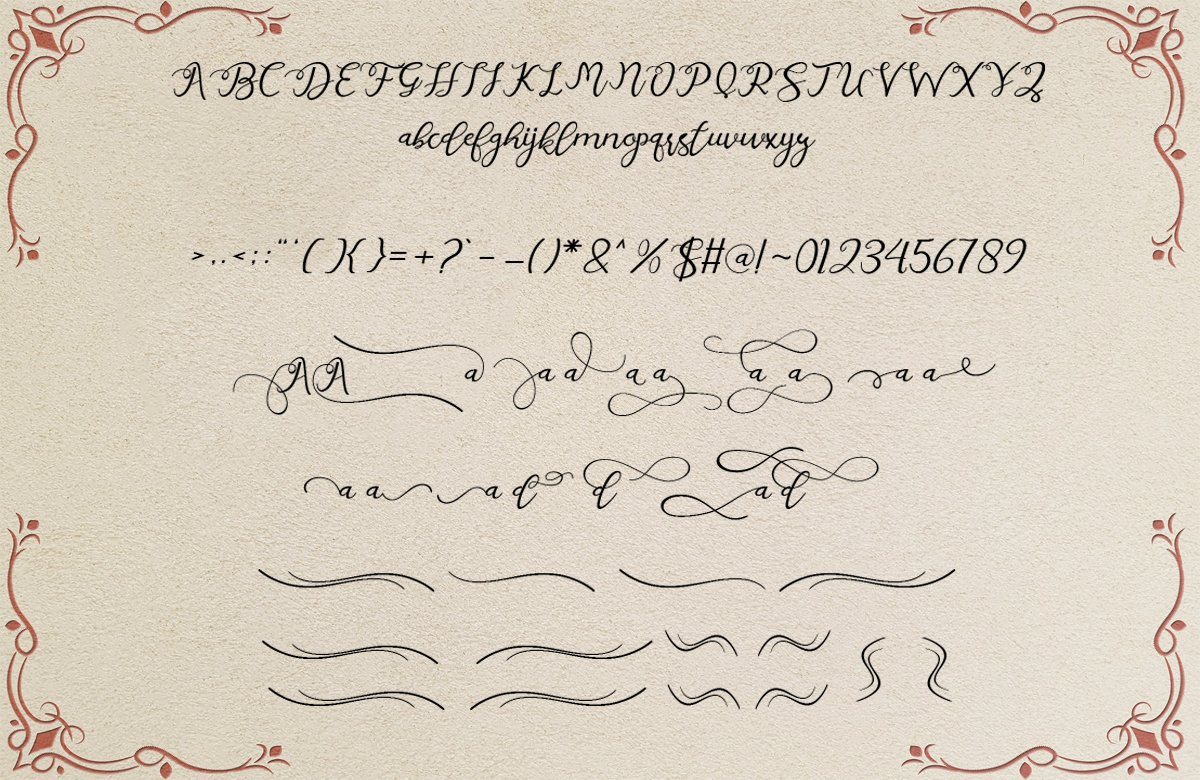 A B C D E F G H I J K L M N O P Q R S T U V W X Y Z
abcdefghijklmnopqrstuvwxyz
> , . . < ; : " ' ( ) { } = + ? ` - _ ( ) * & ^ % $ # @ ! ~ 0 1 2 3 4 5 6 7 8 9
A A a a a a a a a a a
a a a d d a d